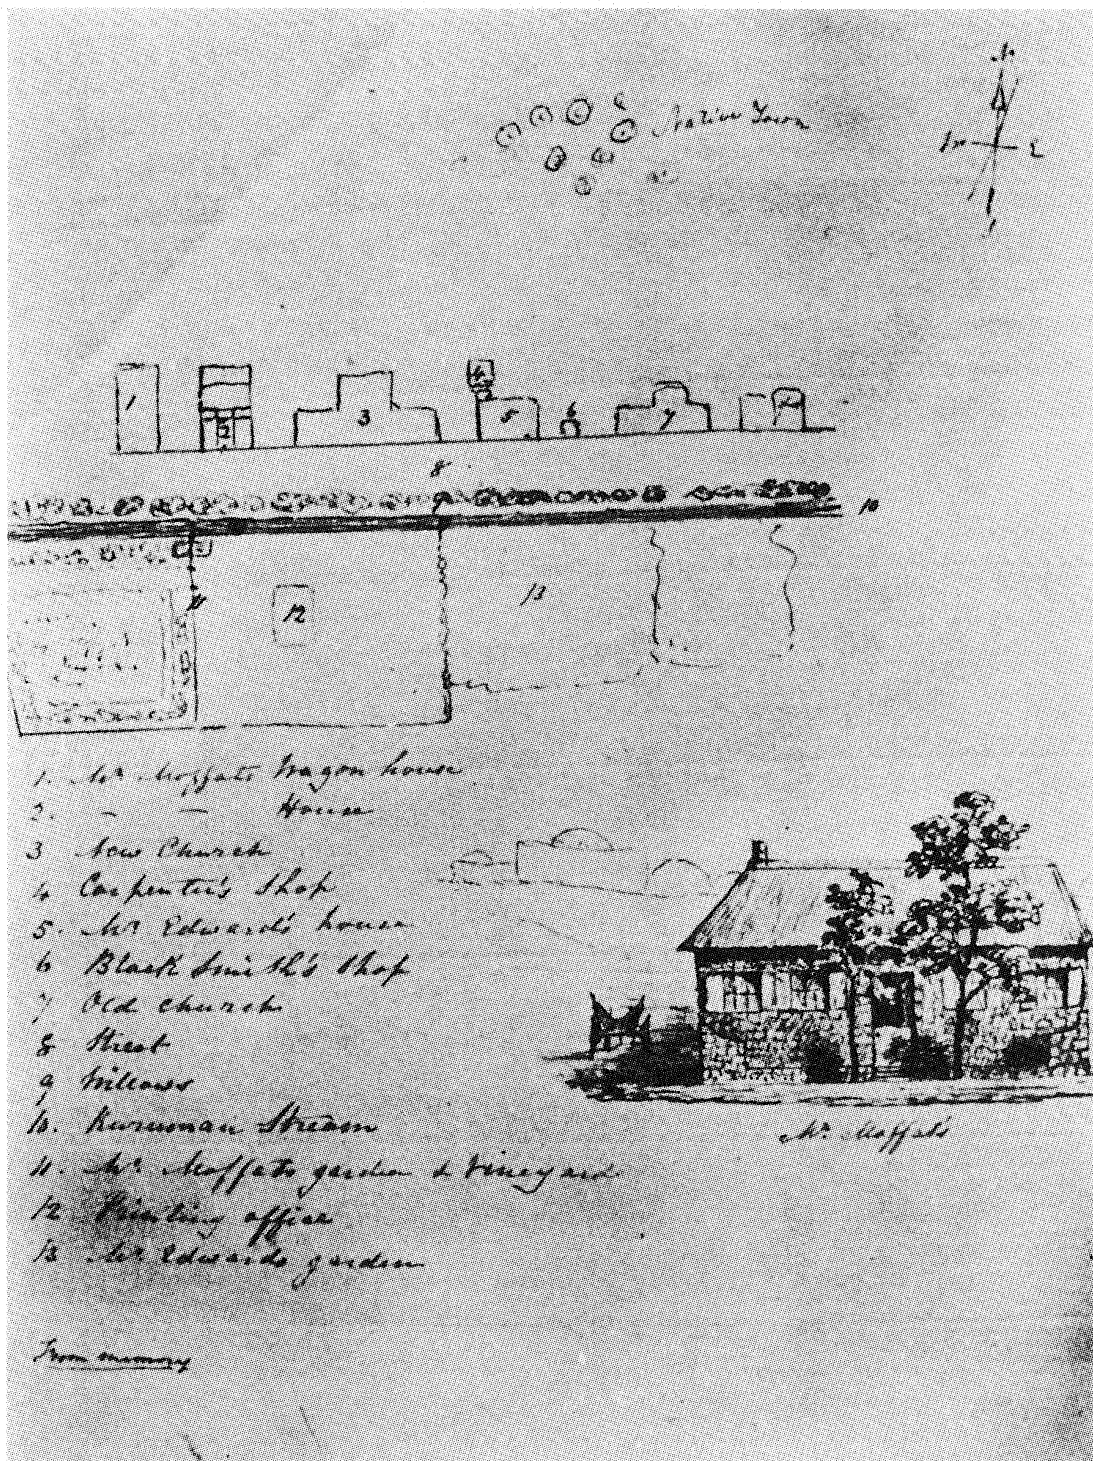 N
Native Town
W E
S
1 2 3 4 5 6 7
8
10
11 12 13
1. Mr Moffats Wagon house
2. — — House
3 New Church
4 Carpenter's Shop
5. Mr Edward's house
6 Black Smith's Shop
7 Old Church
8 Street
9 Willows
10. Kuruman Stream
11. Mr. Moffats garden & Vineyard
12 Printing office
13 Mr Edwards garden
Mr. Moffat's
From memory